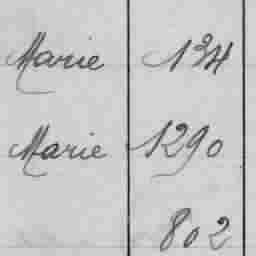 Marie 134
Marie 1290
802